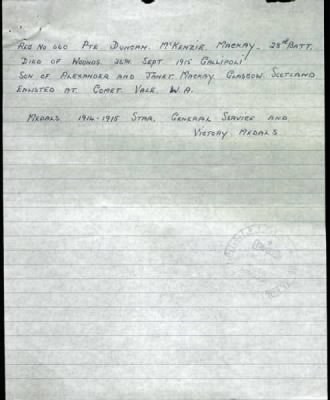 REG NO 060 PTE DUNCAN. MCKENZIE MACKAY. 28TH BATT.
DIED OF WOUNDS. 26TH. SEPT 1915 GALLIPOLI
SON OF ALEXANDER AND JANET MACKAY. GLASGOW. SCOTLAND
ENLISTED AT. COMET VALE. W.A.
MEDALS 1914-1915 STAR. GENERAL SERVICE AND
VICTORY MEDALS